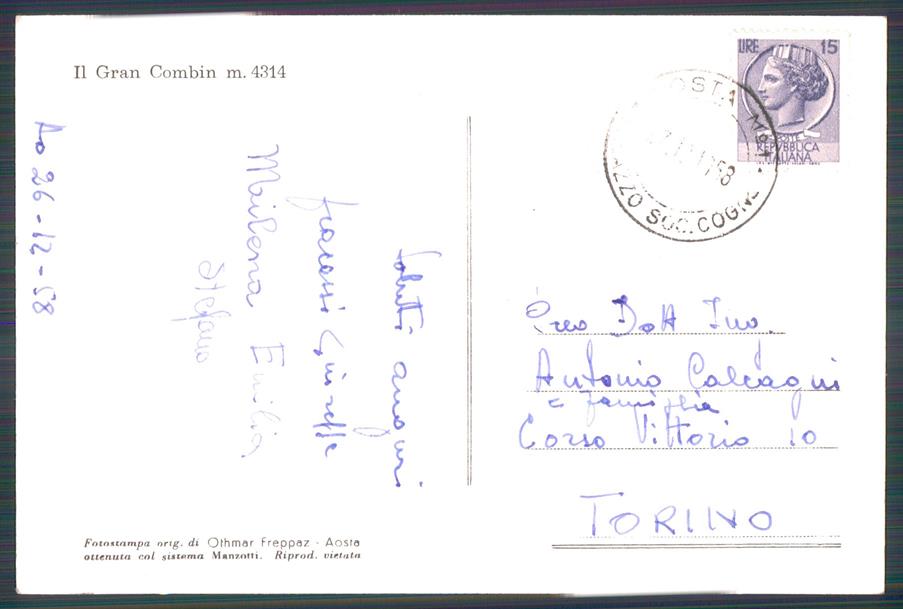 Il Gran Combin m. 4314
LIRE 15
REPVBBLICA
ITALIANA
SUC. COGNE
Ao 26-12-58
Saluti auguri
Giuseppe
Marilena Emilia,
Stefano
Dott
Antonio Calcagni
e famiglia
Corso Vittorio 10
TORINO
Fotostampa orig. di Othmar Freppaz - Aosta
ottenuta col sistema Manzotti. Riprod. vietata